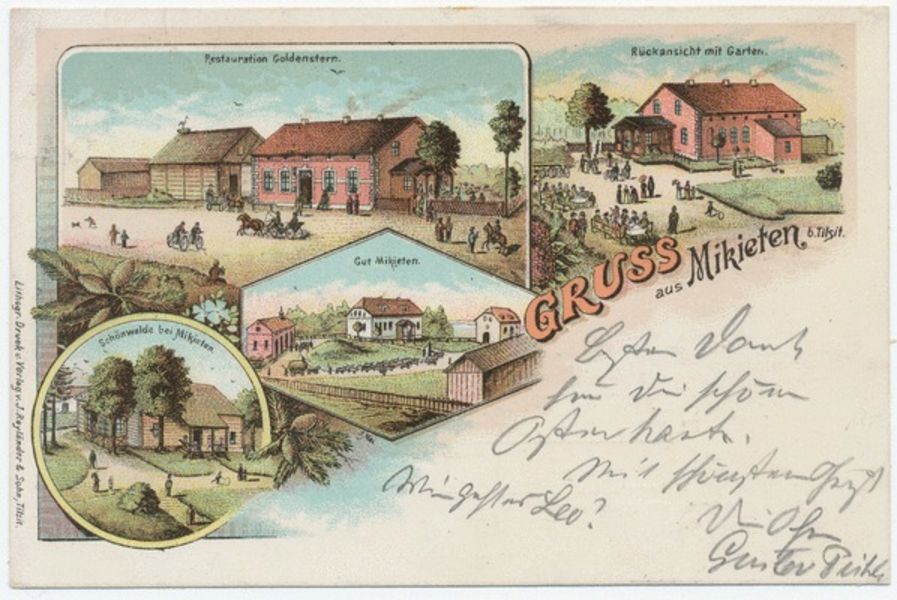 Restauration Goldenstern.
Rückansicht mit Garten.
Gut Mikieten.
Schönwalde bei Mikieten.
GRUSS
aus Mikieten
b. Tilsit.
Lithogr. Druck u. Verlag v. J. Reyländer & Sohn, Tilsit.
Besten Dank
für die schöne
Osterkarte.
Mit schönstem
Wie geht es Leo?
Gustav